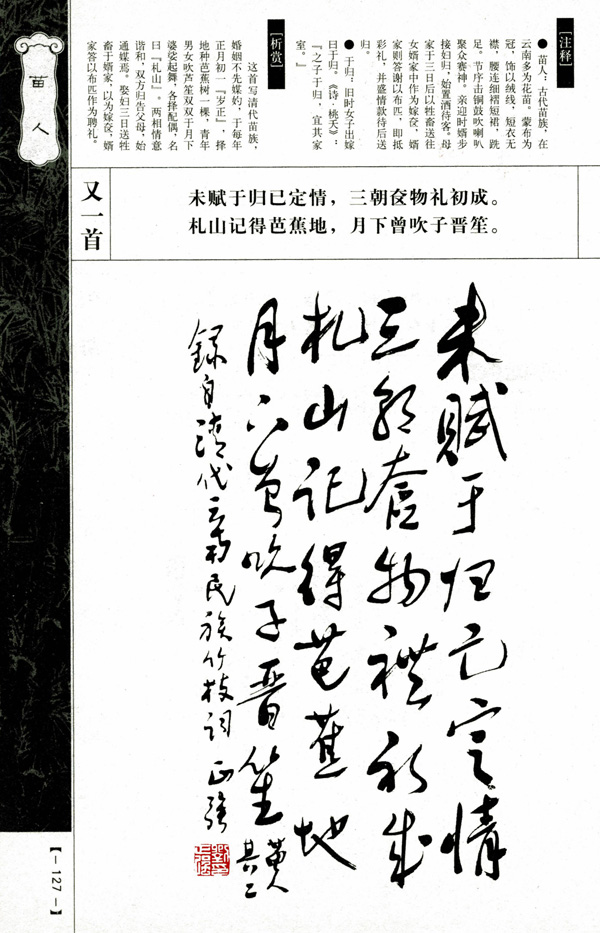 【注释】
●苗人：古代苗族，在
云南多为花苗。蒙布为
冠，饰以绒线，短衣无
襟，腰连细褶短裙，跣
足。节序击铜鼓吹喇叭
聚众赛神。亲迎时婿步
接妇归，始置酒待客。母
家于三日后以牲畜送往
女婿家中作为嫁奁，婿
家则答谢以布匹，即抵
彩礼，并盛情款待后送
归。
●于归：旧时女子出嫁
曰于归。《诗·桃夭》：
『之子于归，宜其家
室。』
【析赏】
这首写清代苗族，
婚姻不先媒妁，于每年
正月初一『岁正』，择
地种芭蕉树一棵，青年
男女吹芦笙双双于月下
婆娑起舞，各择配偶，名
曰『札山』。两相情意
谐和，双方归告父母，始
通媒焉。娶妇三日送牲
畜于婿家，以为嫁奁，婿
家答以布匹作为聘礼。
苗人
又一首
未赋于归已定情，三朝奁物礼初成。
札山记得芭蕉地，月下曾吹子晋笙。
未赋于归已定情
三朝奁物禮初成
札山记得芭蕉地
月下曾吹子晋笙 苗人其二
録自清代云南民族竹枝词 正强
【－127－】